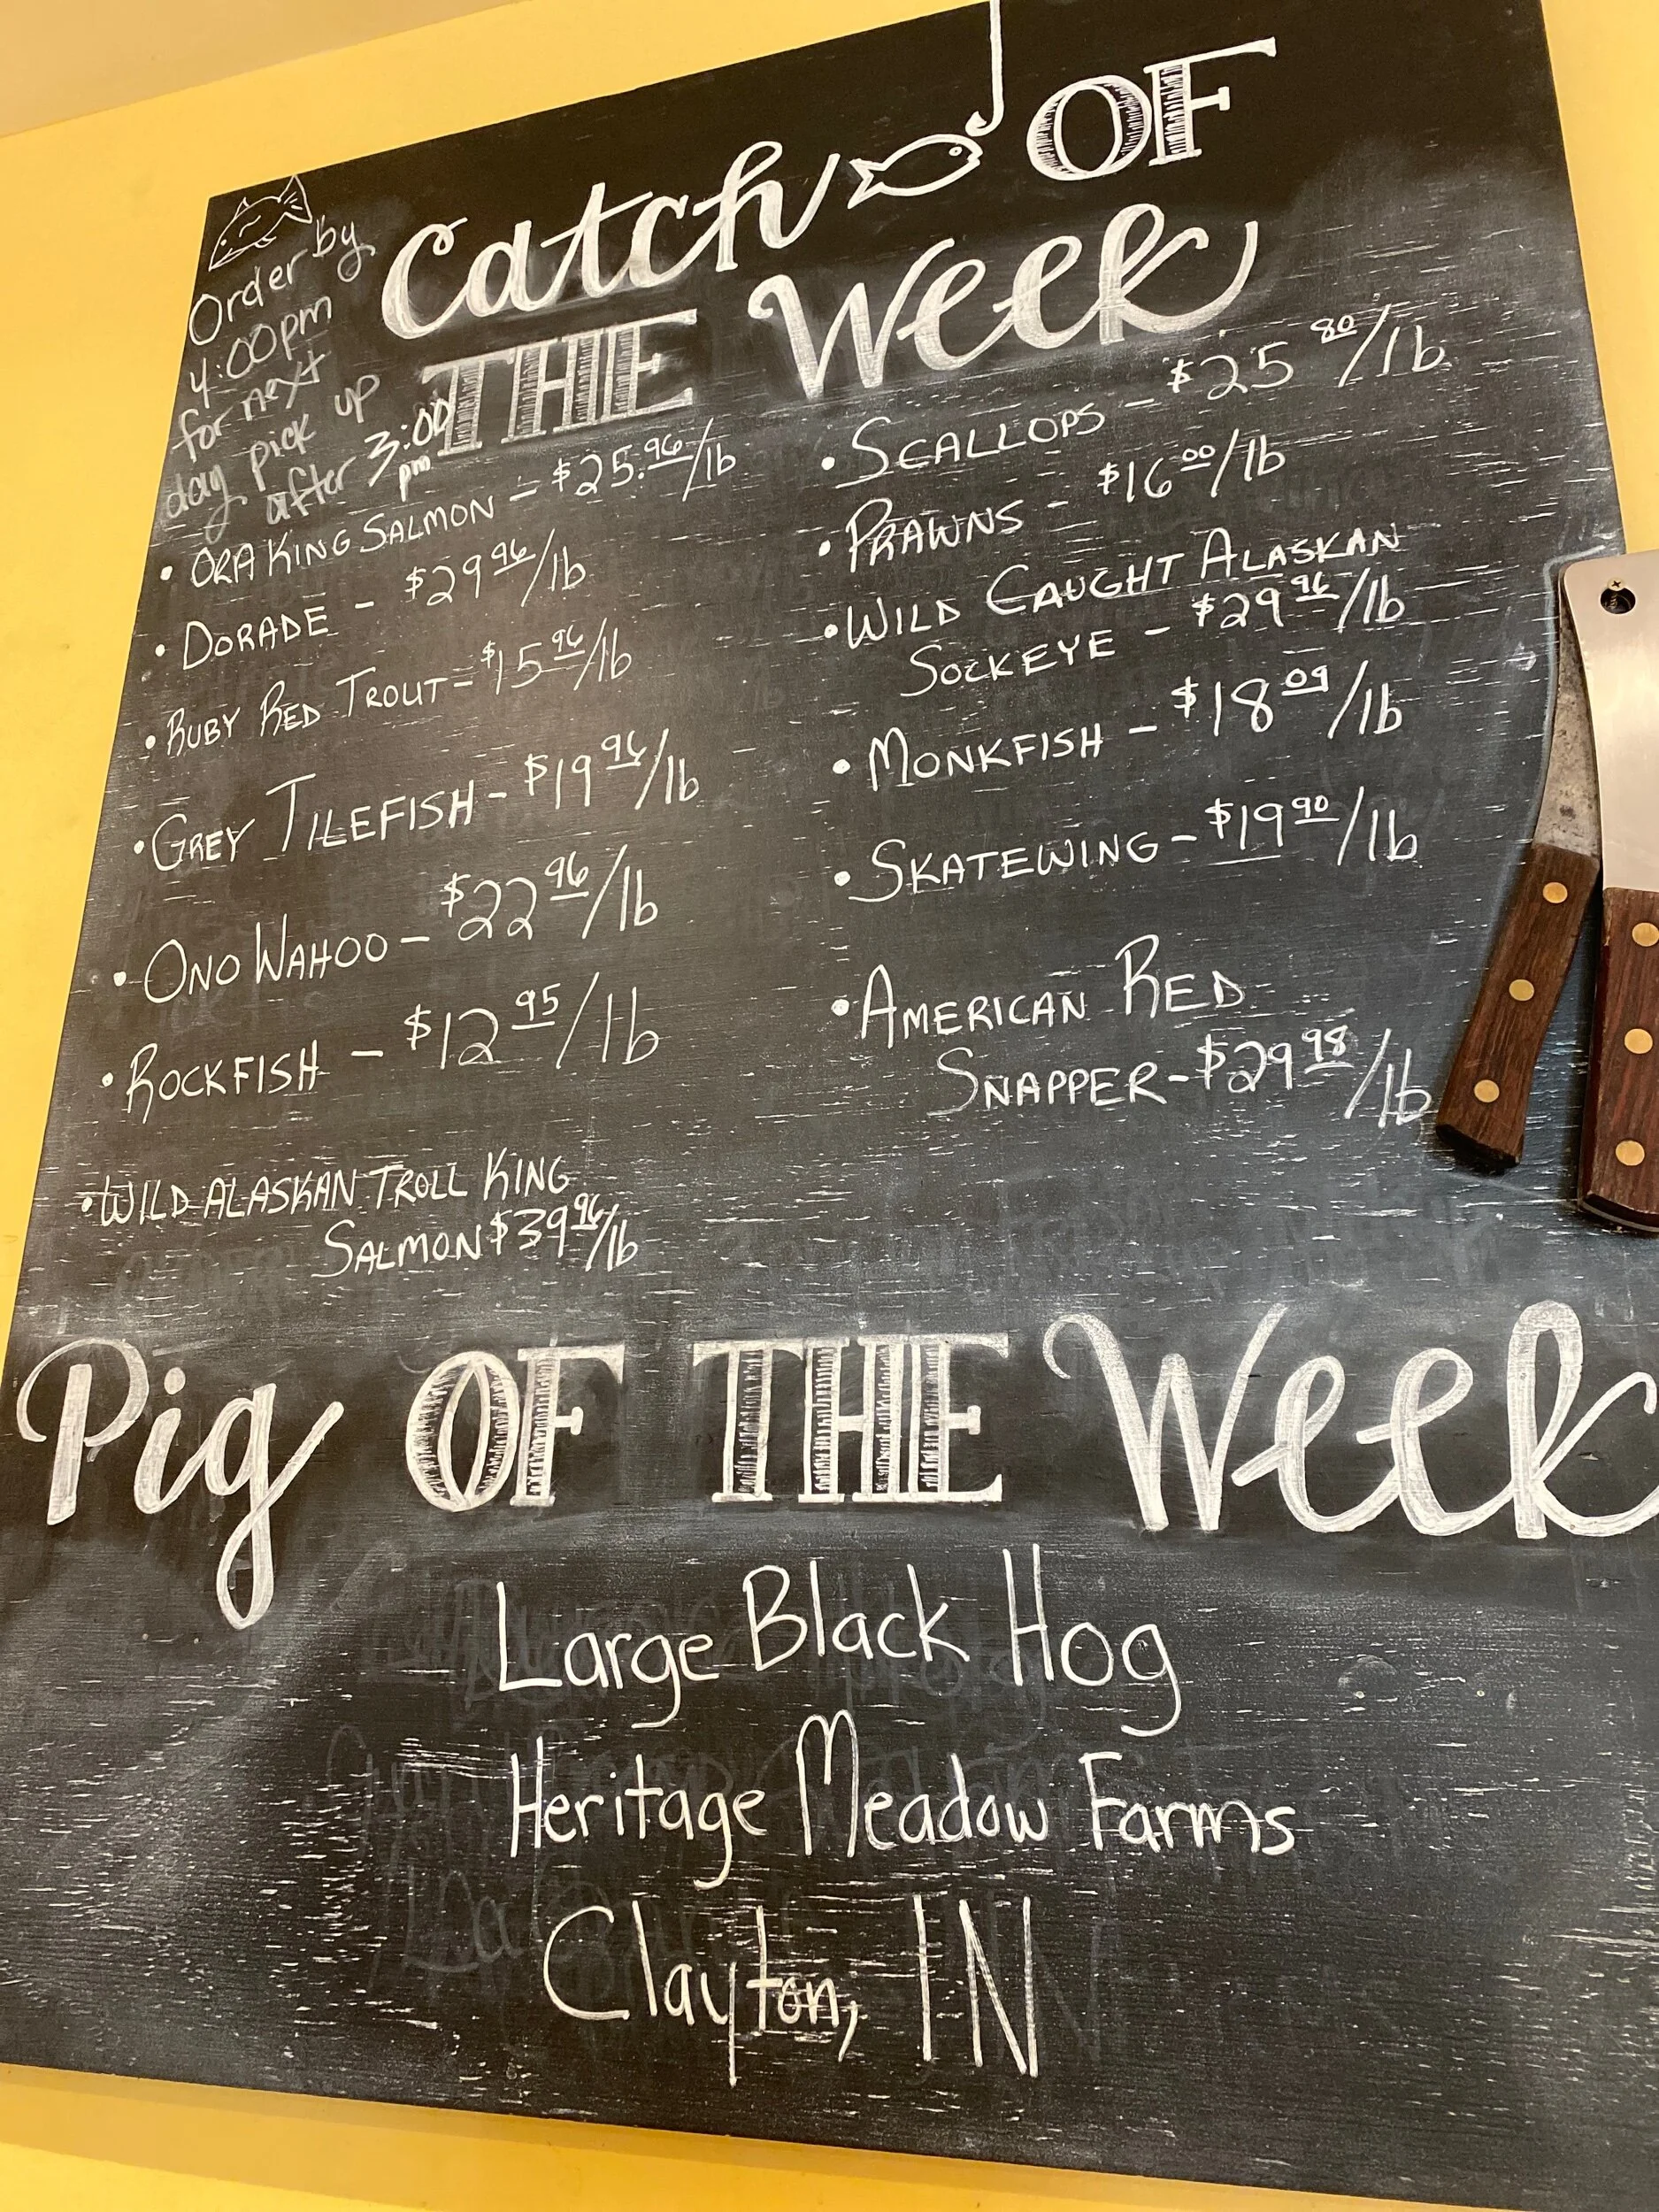 Catch OF
THE Week
Order by
4:00pm
for next
day pick up
after 3:00
pm
• ORA KING SALMON - $25.96/lb
• DORADE - $29 96/lb
• RUBY RED TROUT - $15 96/lb
• GREY TILEFISH - $19 96/lb
• ONO WAHOO - $22 96/lb
• ROCKFISH - $12 95/lb
• WILD ALASKAN TROLL KING
SALMON $39 96/lb
• SCALLOPS - $25 80/lb
• PRAWNS - $16 00/lb
• WILD CAUGHT ALASKAN
SOCKEYE - $29 96/lb
• MONKFISH - $18 09/lb
• SKATEWING - $19 90/lb
• AMERICAN RED
SNAPPER - $29 98/lb
Pig OF THE Week
Large Black Hog
Heritage Meadow Farms
Clayton, IN